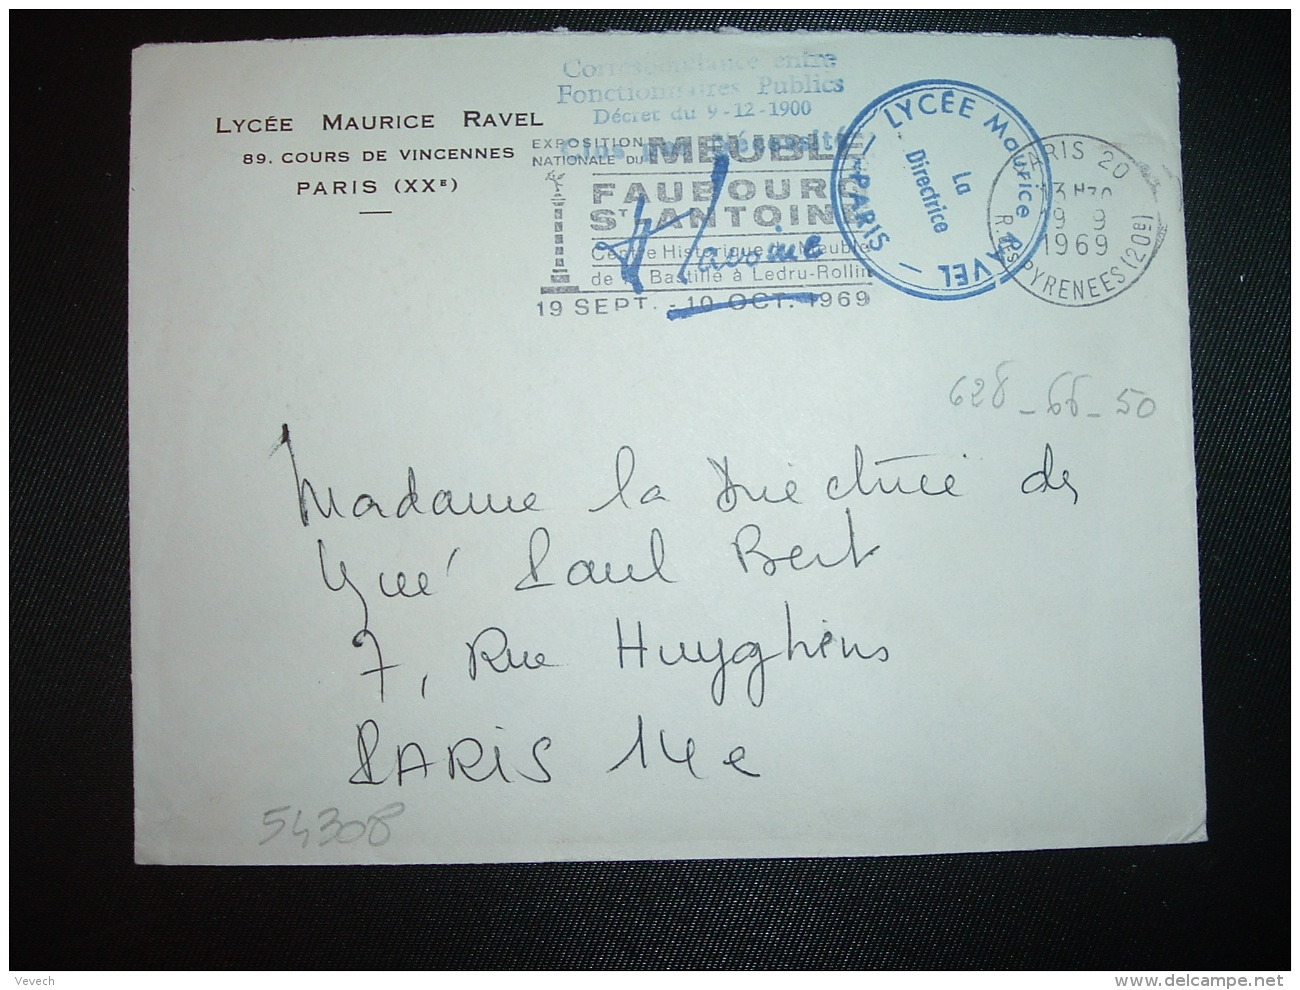 LYCÉE MAURICE RAVEL
89. COURS DE VINCENNES
PARIS (XXE)
Correspondance entre
Fonctionnaires Publics
Décret du 9-12-1900
Clos par Nécessité
EXPOSITION
NATIONALE DU MEUBLE
FAUBOURG
ST-ANTOINE
Centre Historique du Meuble
de la Bastille à Ledru-Rollin
19 SEPT. - 10 OCT. 1969
LYCÉE Maurice RAVEL
— PARIS —
La
Directrice
PARIS 20
13H30
19 9
1969
R. DES PYRENEES (20E)
628-66-50
Madame la Directrice du
Lycée Paul Bert
7, Rue Huyghens
PARIS 14e
54308
Vevech
www.delcampe.net